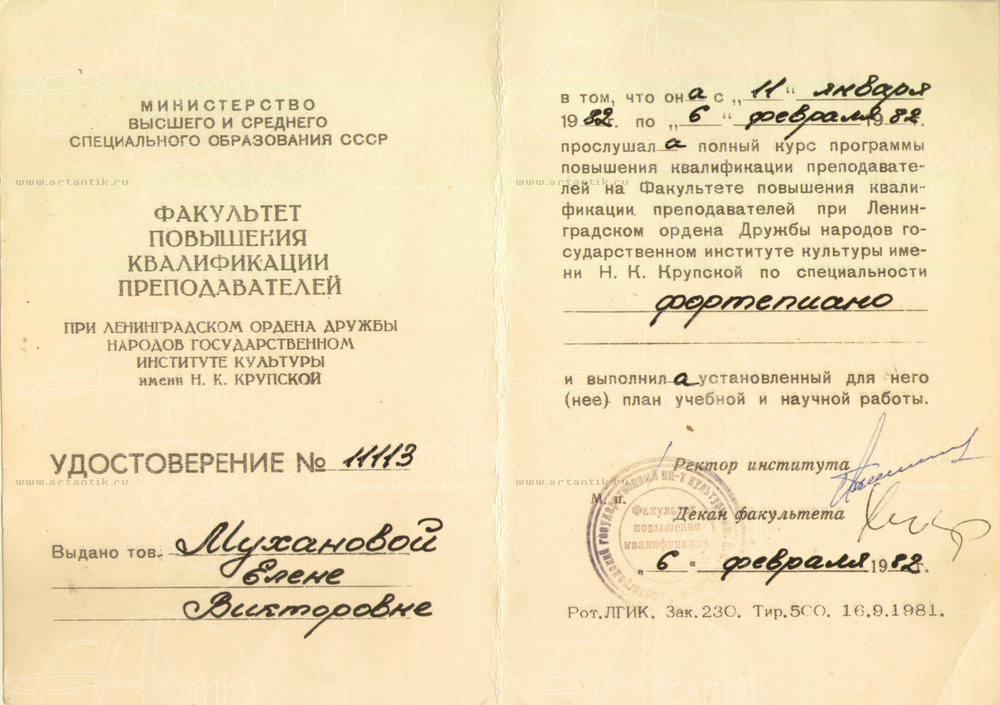 МИНИСТЕРСТВО
ВЫСШЕГО И СРЕДНЕГО
СПЕЦИАЛЬНОГО ОБРАЗОВАНИЯ СССР
www.artantik.ru
ФАКУЛЬТЕТ
ПОВЫШЕНИЯ
КВАЛИФИКАЦИИ
ПРЕПОДАВАТЕЛЕЙ
ПРИ ЛЕНИНГРАДСКОМ ОРДЕНА ДРУЖБЫ
НАРОДОВ ГОСУДАРСТВЕННОМ
ИНСТИТУТЕ КУЛЬТУРЫ
имени Н. К. КРУПСКОЙ
УДОСТОВЕРЕНИЕ № 11113
www.artantik.ru
Выдано тов. Мухановой
Елене
Викторовне
в том, что она с „11" января
1982г. по „6" февраля 1982.
прослушала полный курс программы
повышения квалификации преподавате-
www.artantik.ru
лей на Факультете повышения квали-
фикации преподавателей при Ленин-
градском ордена Дружбы народов го-
сударственном институте культуры име-
ни Н. К. Крупской по специальности
фортепиано
и выполнила установленный для него
(нее) план учебной и научной работы.
Ректор института
www.artantik.ru
М. п.
Декан факультета
Факультет
повышения
квалификации
„6" февраля 1982г.
Рот.ЛГИК. Зак.230. Тир.500. 16.9.1981.